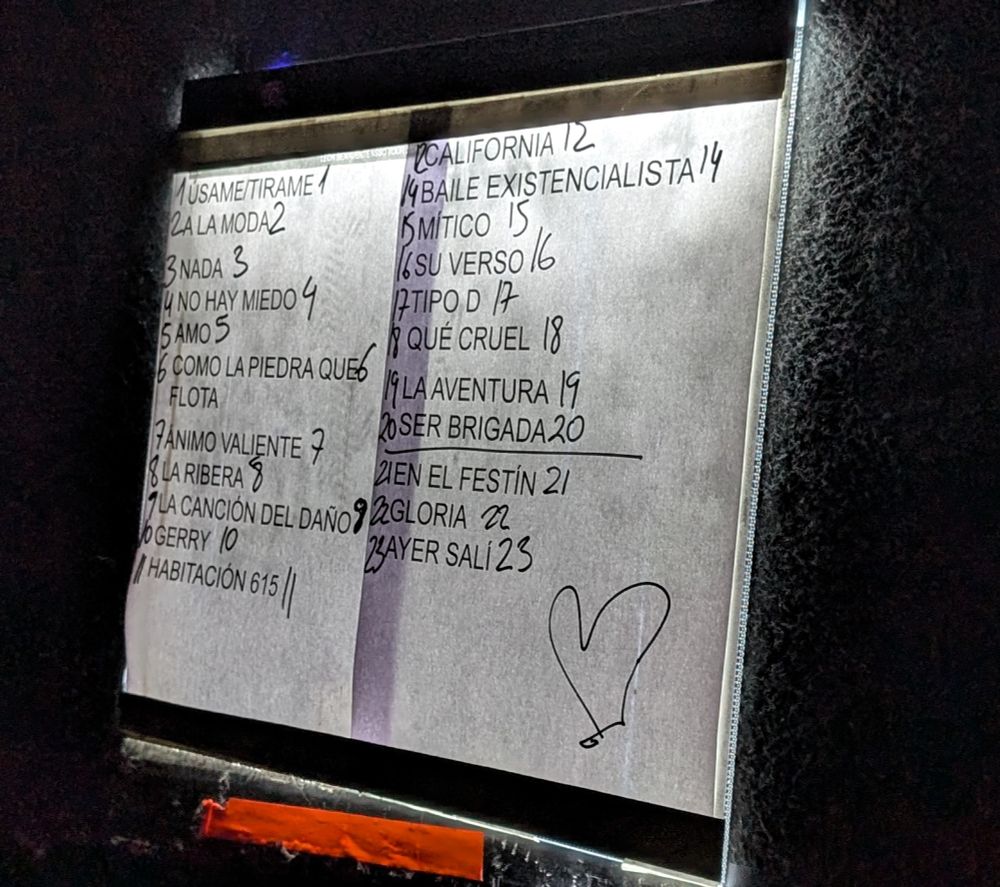 1 ÚSAME/TIRAME 1
2 A LA MODA 2
3 NADA 3
4 NO HAY MIEDO 4
5 AMO 5
6 COMO LA PIEDRA QUE 6
FLOTA
7 ÁNIMO VALIENTE 7
8 LA RIBERA 8
9 LA CANCIÓN DEL DAÑO 9
10 GERRY 10
11 HABITACIÓN 615 11
12 CALIFORNIA 12
14 BAILE EXISTENCIALISTA 14
15 MÍTICO 15
16 SU VERSO 16
17 TIPO D 17
18 QUÉ CRUEL 18
19 LA AVENTURA 19
20 SER BRIGADA 20
21 EN EL FESTÍN 21
22 GLORIA 22
23 AYER SALÍ 23